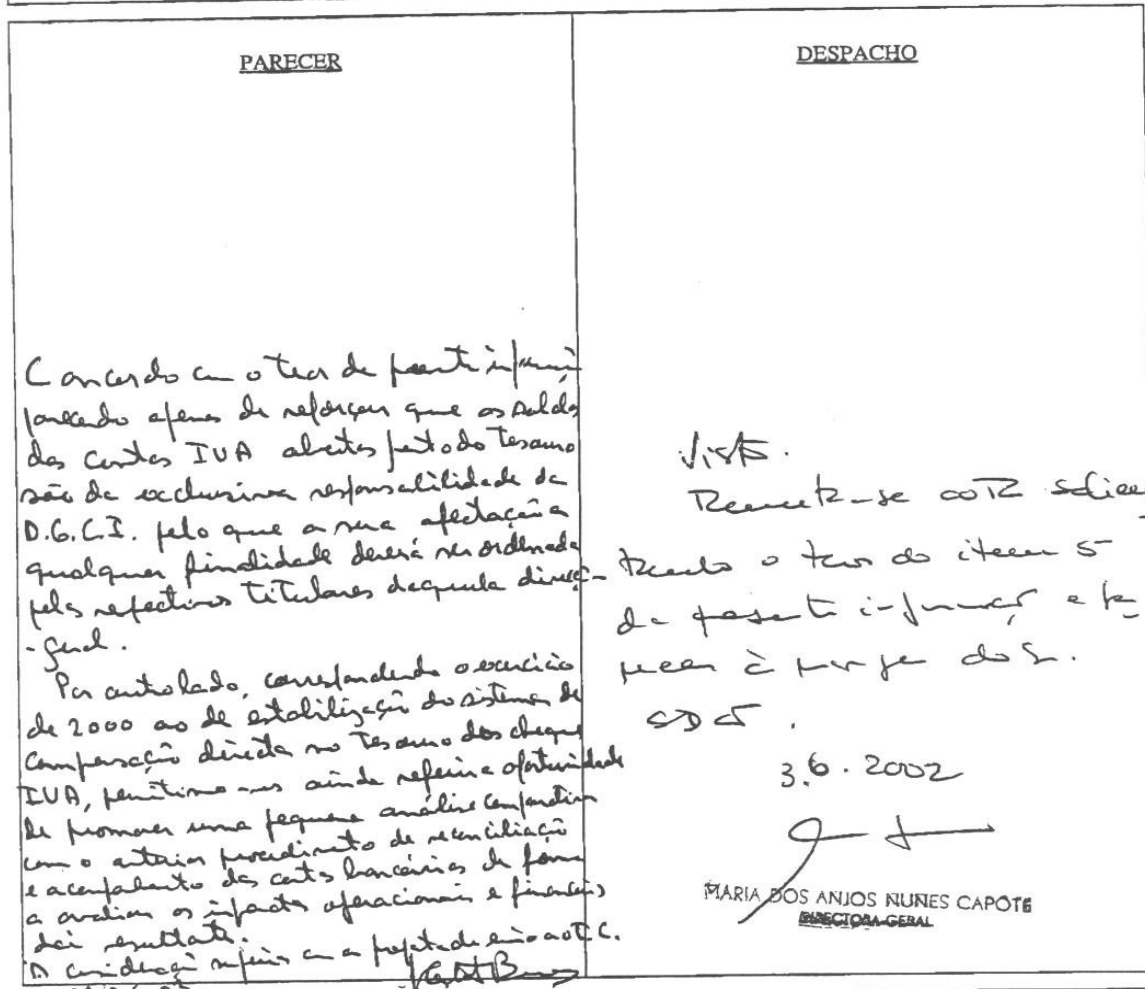 PARECER
Concordo com o teor da presente informação
parecendo apenas de reforçar que os saldos
das contas IVA abertas junto do Tesouro
são da exclusiva responsabilidade da
D.G.C.I. pelo que a sua afectação a
qualquer finalidade deverá ser ordenada
pelos respectivos titulares daquela direcção
-geral.
Por outro lado, correspondendo o exercício
de 2000 ao de estabilização do sistema de
compensação directa no Tesouro dos cheques
IVA, permitimo-nos ainda referir a oportunidade
de promover uma pequena análise comparativa
com o anterior procedimento de reconciliação
e acompanhamento das contas bancárias de forma
a avaliar os impactos operacionais e financeiros
daí resultantes.
À consideração superior com a proposta de envio ao T.C.
DESPACHO
Visto.
Remeta-se ao TC salien-
tando o teor do item 5
da presente informação e
3.6.2002
MARIA DOS ANJOS NUNES CAPOTE
DIRECTORA-GERAL